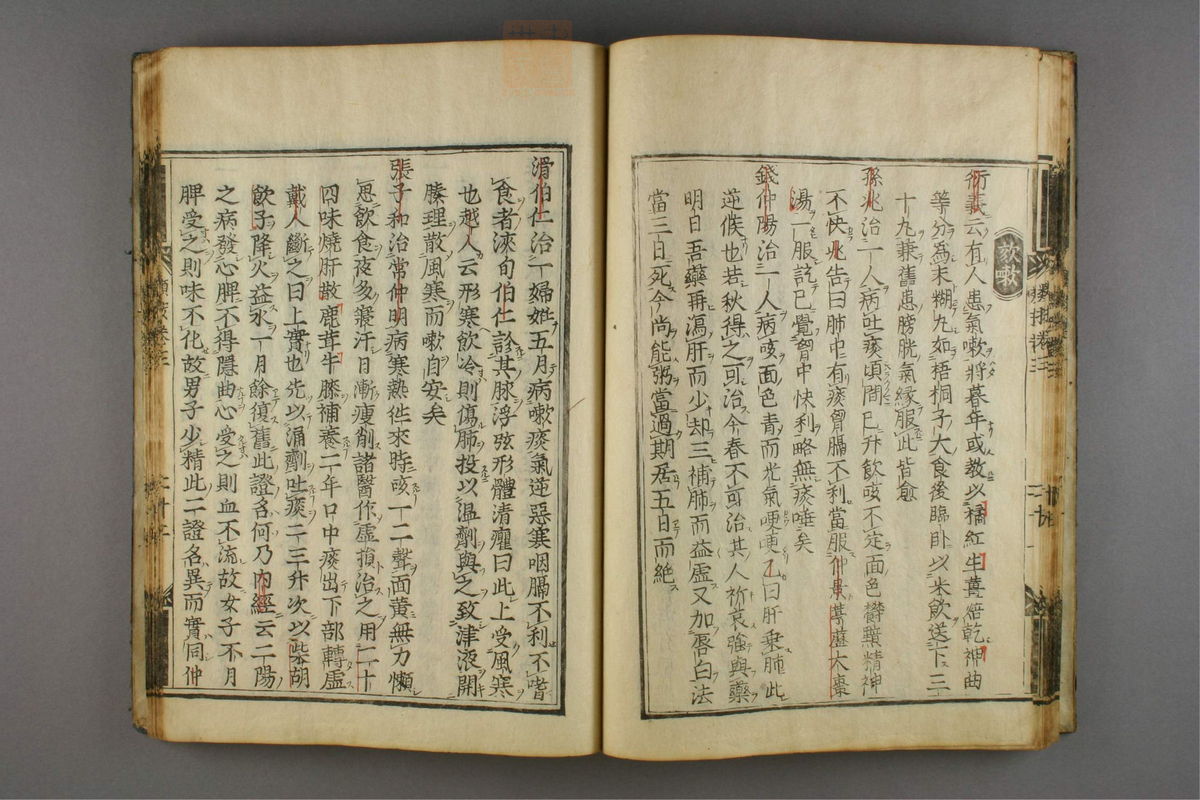 欬嗽
衍義云有人患氣嗽將朞年或教以橘紅生薑焙乾神曲
等分爲末糊丸如梧桐子大食後臨卧以米飲送下三
十丸兼舊患膀胱氣緣服此皆愈
孫兆治一人病吐痰頃間已升飲咳不定面色鬱黯精神
不快兆告曰肺中有痰胷膈不利當服仲景葶藶大棗
湯一服訖已覺胷中快利略無痰唾矣
錢仲陽治一人病咳面色青而光氣哽哽乙曰肝乗肺此
逆候也若秋得之可治今春不可治其人祈哀強與藥
明日吾藥再瀉肝而少却三補肺而益虛又加唇白法
當三日死今尚能粥當過期居五日而絶
滑伯仁治一婦姙五月病嗽痰氣逆惡寒咽膈不利不嗜
食者浹旬伯仁診其脉浮弦形體清癯曰此上受風寒
也越人云形寒飲冷則傷肺投以温劑與之致津液開
腠理散風寒而嗽自安矣
張子和治常仲明病寒熱徃來時咳一二聲面黄無力懶
思飲食夜多寢汗日漸瘦削諸醫作虛損治之用二十
四味燒肝散鹿茸牛膝補養二年口中痰出下部轉虛
戴人斷之曰上實也先以涌劑吐痰二三升次以柴胡
飲子降火益水一月餘復舊此證名何乃内經云二陽
之病發心脾不得隱曲心受之則血不流故女子不月
脾受之則味不化故男子少精此二證名異而實同仲